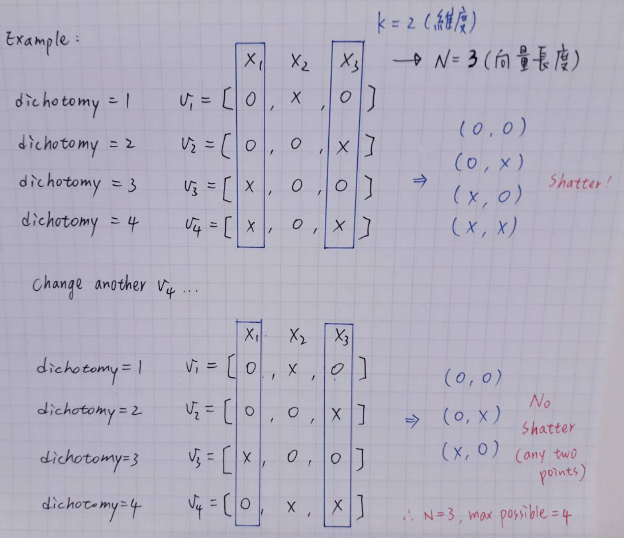 k = 2 (維度)
Example :
x₁ x₂ x₃ → N = 3 (向量長度)
dichotomy = 1 v₁ = [ 0 , x , 0 ]
dichotomy = 2 v₂ = [ 0 , 0 , x ]
dichotomy = 3 v₃ = [ x , 0 , 0 ]
dichotomy = 4 v₄ = [ x , 0 , x ]
⇒
(0, 0)
(0, x)
(x, 0)
(x, x)
Shatter!
Change another v₄ ...
x₁ x₂ x₃
dichotomy = 1 v₁ = [ 0 , x , 0 ]
dichotomy = 2 v₂ = [ 0 , 0 , x ]
dichotomy = 3 v₃ = [ x , 0 , 0 ]
dichotomy = 4 v₄ = [ 0 , x , x ]
⇒
(0, 0)
(0, x)
(x, 0)
No
Shatter
(any two
points)
∴ N = 3, max possible = 4